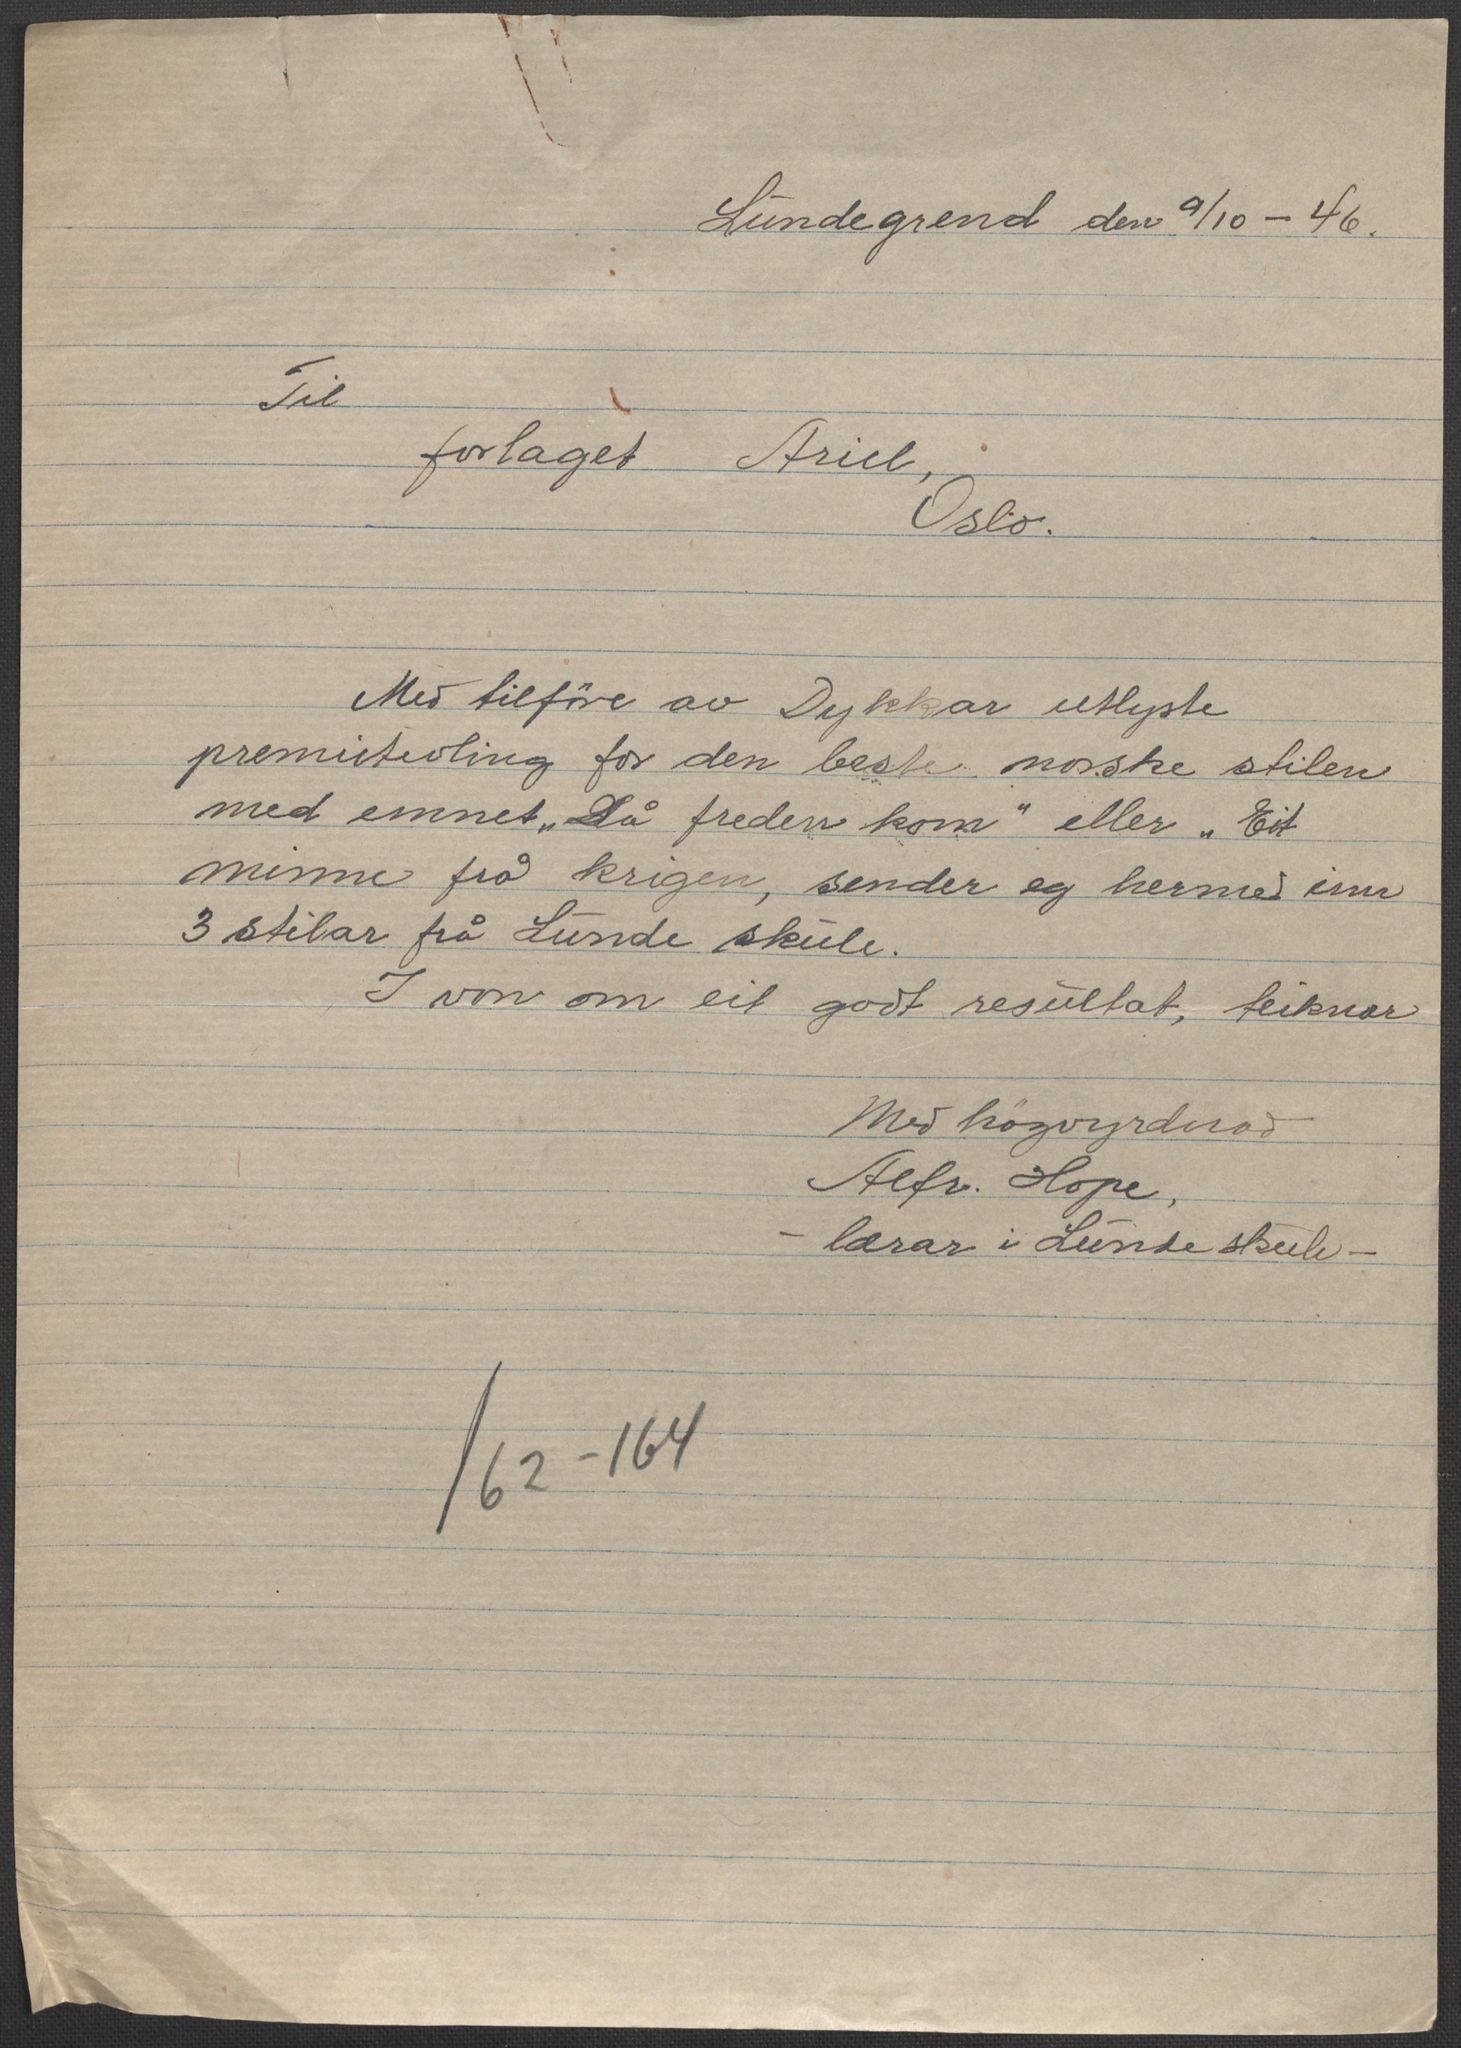 Lundegrend den 9/10 – 46.
Til
forlaget Ariel,
Oslo.
Med tilföre av Dykkar utlyste
premietevling for den beste norske stilen
med emnet „Då freden kom" eller „Eit
minne frå krigen, sender eg hermed inn
3 stilar frå Lunde skule.
I von om eit godt resultat, teiknar
Med högvyrdnad
Alfr. Hope,
– lærar i Lunde skule –
162 – 164